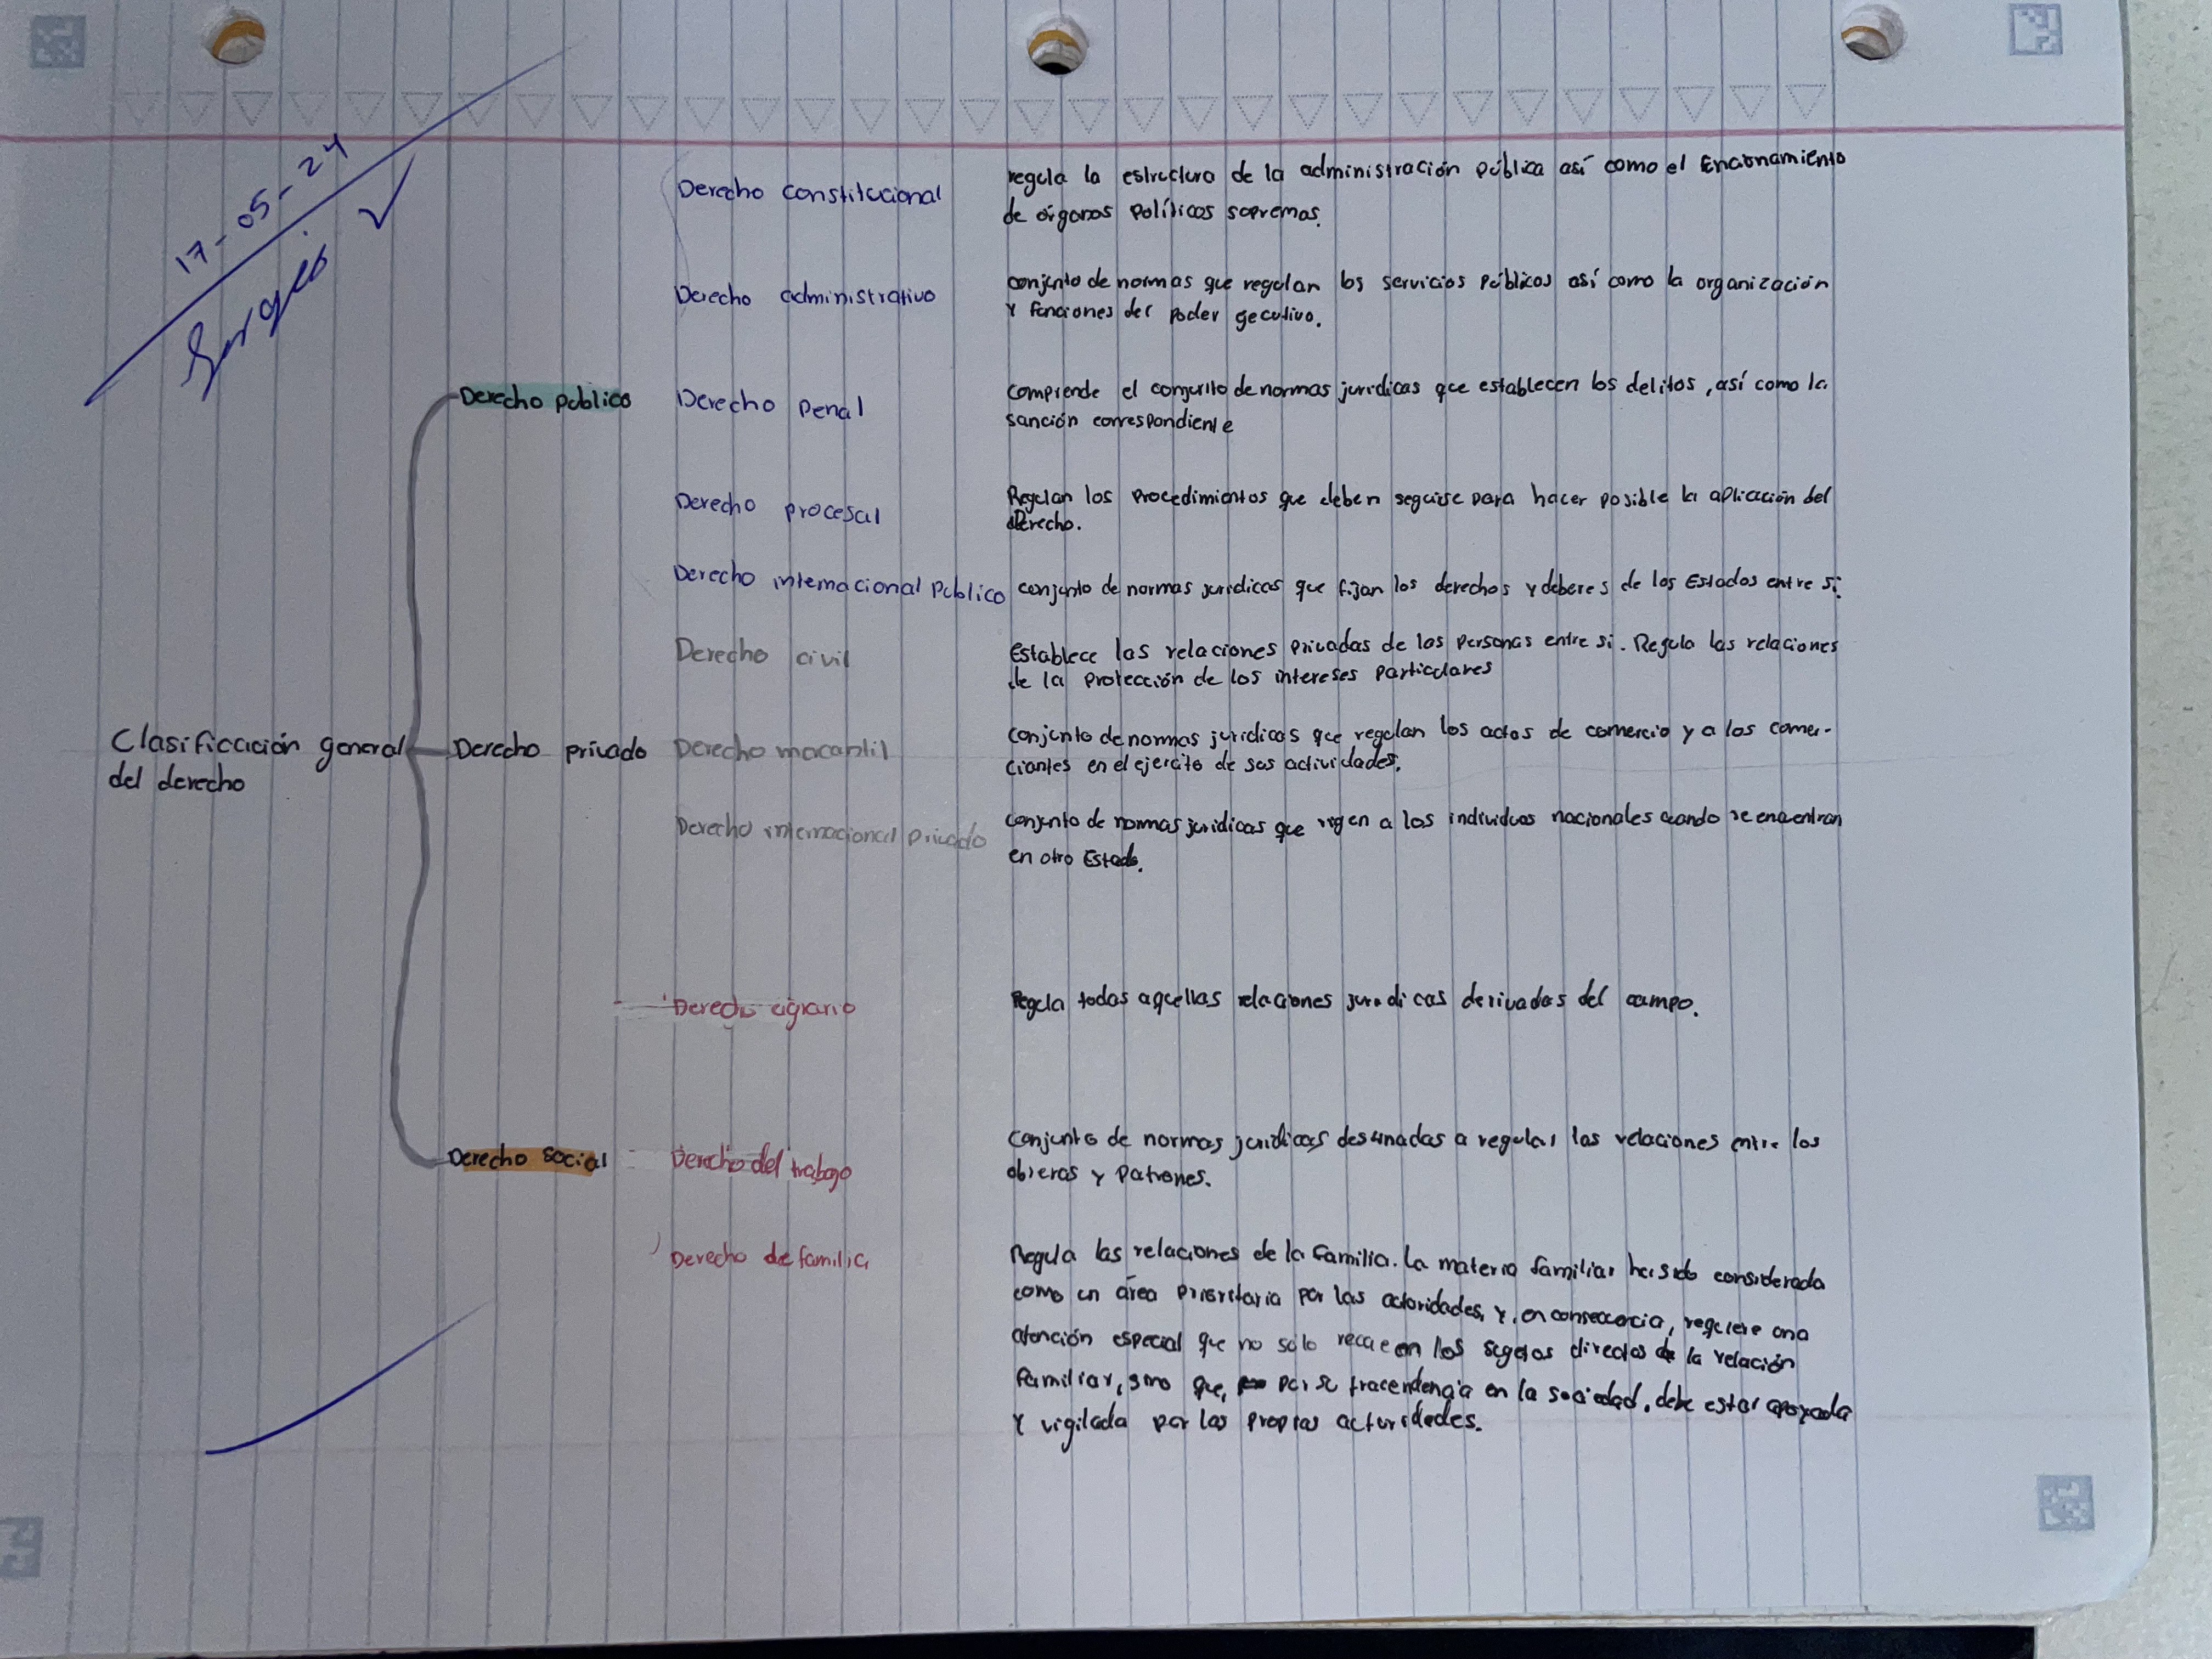 17-05-24
Clasificación general
del derecho
Derecho publico
Derecho constitucional
regula la estructura de la administración pública así como el funcionamiento
de órganos políticos supremos.
Derecho administrativo
conjunto de normas que regulan los servicios públicos así como la organización
y funciones del poder gecutivo.
Derecho penal
comprende el conjunto de normas jurídicas que establecen los delitos, así como la
sanción correspondiente
Derecho procesal
Regulan los procedimientos que deben seguirse para hacer posible la aplicación del
derecho.
Derecho internacional publico
conjunto de normas juridicas que fijan los derechos y deberes de los Estados entre si.
Derecho privado
Derecho civil
Establece las relaciones privadas de las personas entre si. Regula las relaciones
de la protección de los intereses particulares
Derecho macantil
conjunto de normas juridicas que regulan los actos de comercio y a los comer-
ciantes en el ejercito de sus actividades.
Derecho internacional privado
conjunto de normas juridicas que rigen a los individuos nacionales cuando se encuentran
en otro Estado.
Derecho social
Derecho agrario
Regula todas aquellas relaciones juridicas derivadas del campo.
Derecho del trabajo
Conjunto de normas juridicas destinadas a regular las relaciones entre los
obreros y patrones.
Derecho de familia
Regula las relaciones de la familia. La materia familiar ha sido considerada
como un área prioritaria por las autoridades, y, en consecuencia, requiere una
atención especial que no sólo recae en los sugetos directos de la relación
familiar, sino que, por su tracendencia en la sociedad, debe estar apoyada
y vigilada por las propias autoridades.